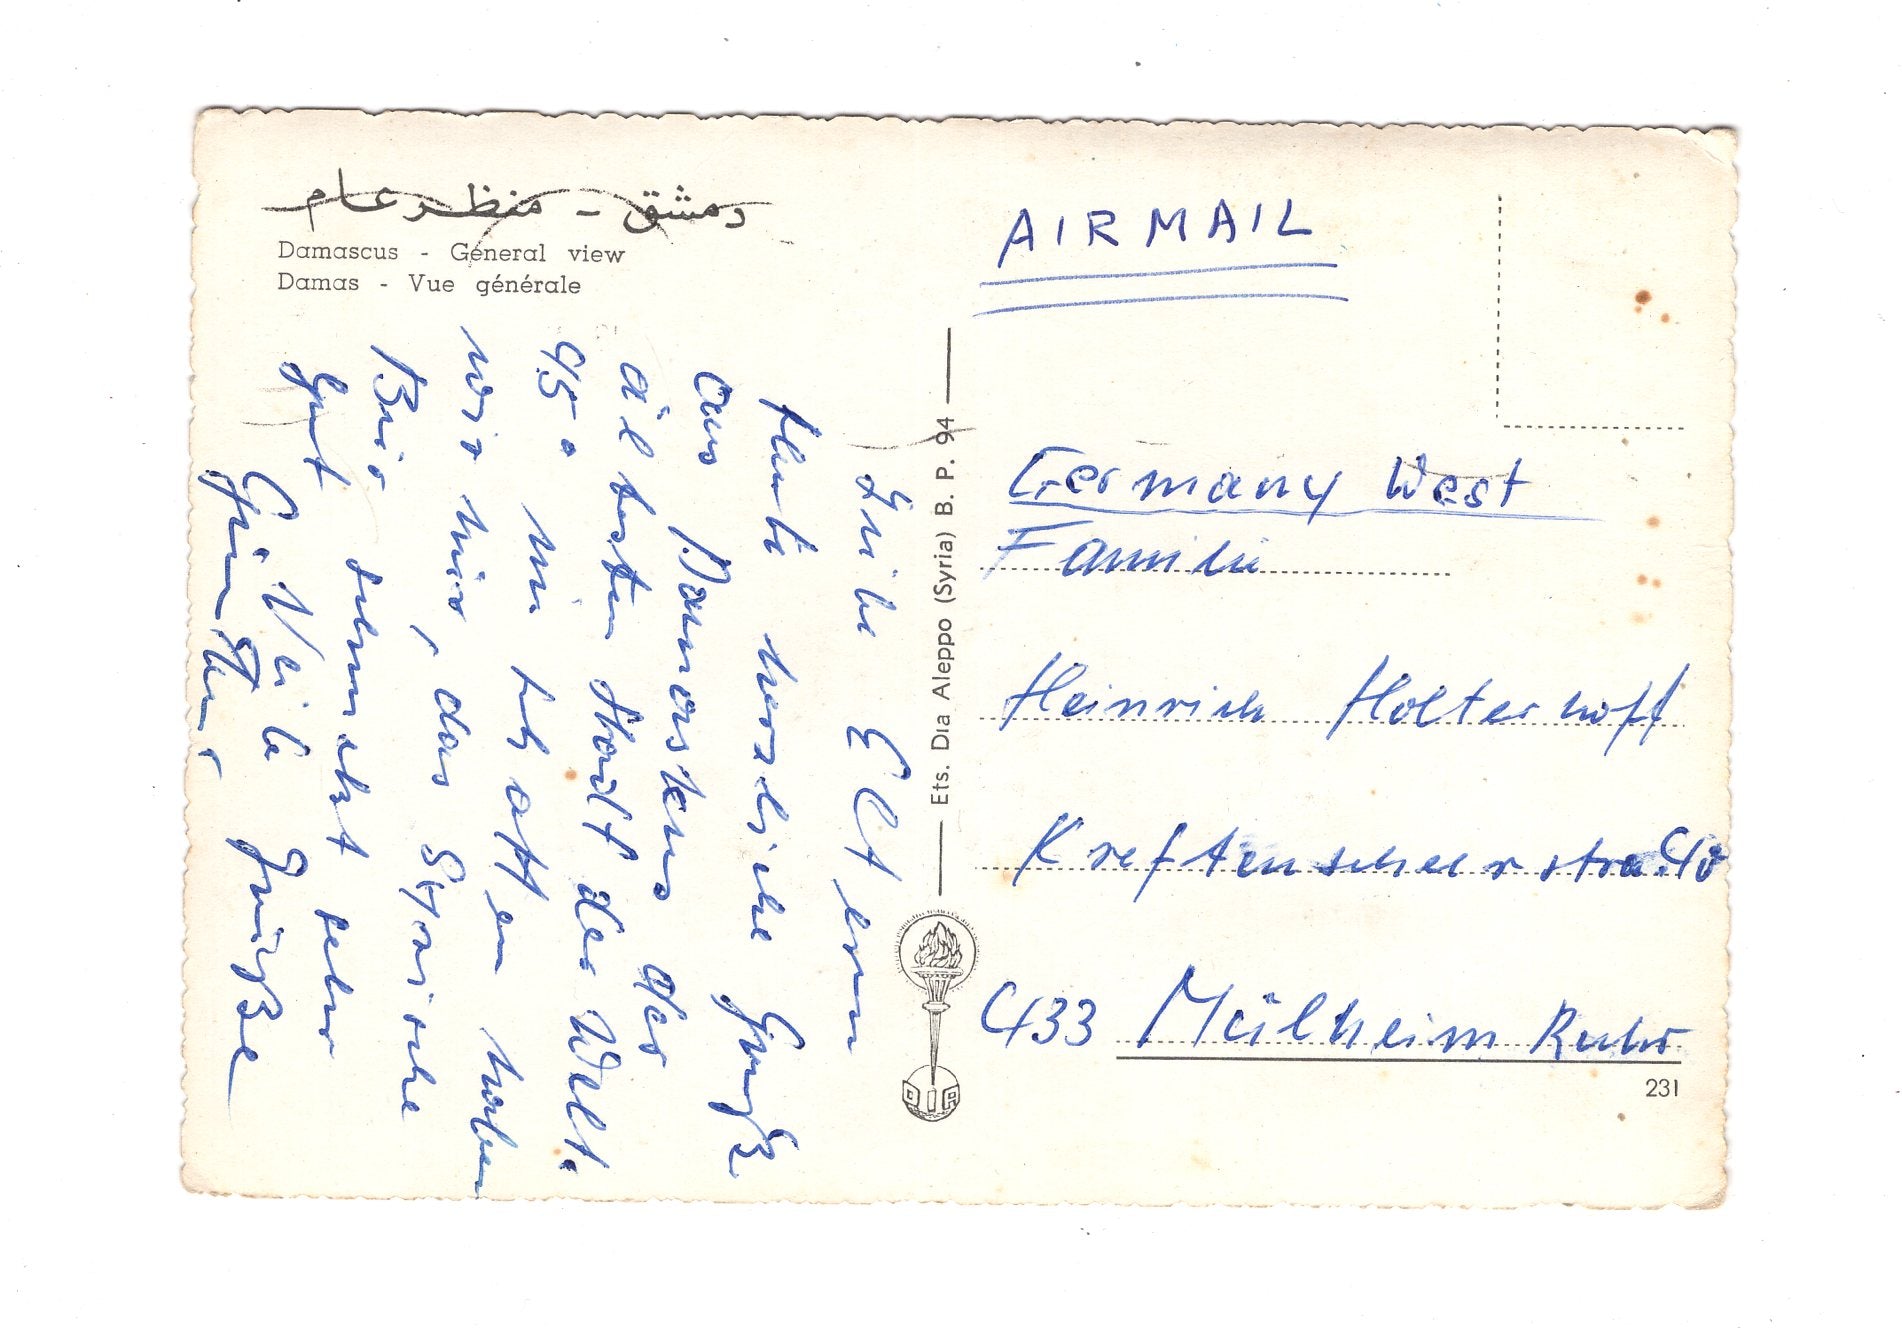 دمشق - منظر عام
Damascus - General view
Damas - Vue générale
Liebe Eltern
Heute herzliche Grüße
aus Damaskus der
ältesten Stadt der Welt.
45° im Schatten haben
wir hier, das Syrische
Bier schmeckt sehr
gut
Viele Grüße
Ets. Dia Aleppo (Syria) B. P. 94
DIA
AIRMAIL
Germany West
Familie
Heinrich Holterhoff
433 Mülheim Ruhr
231